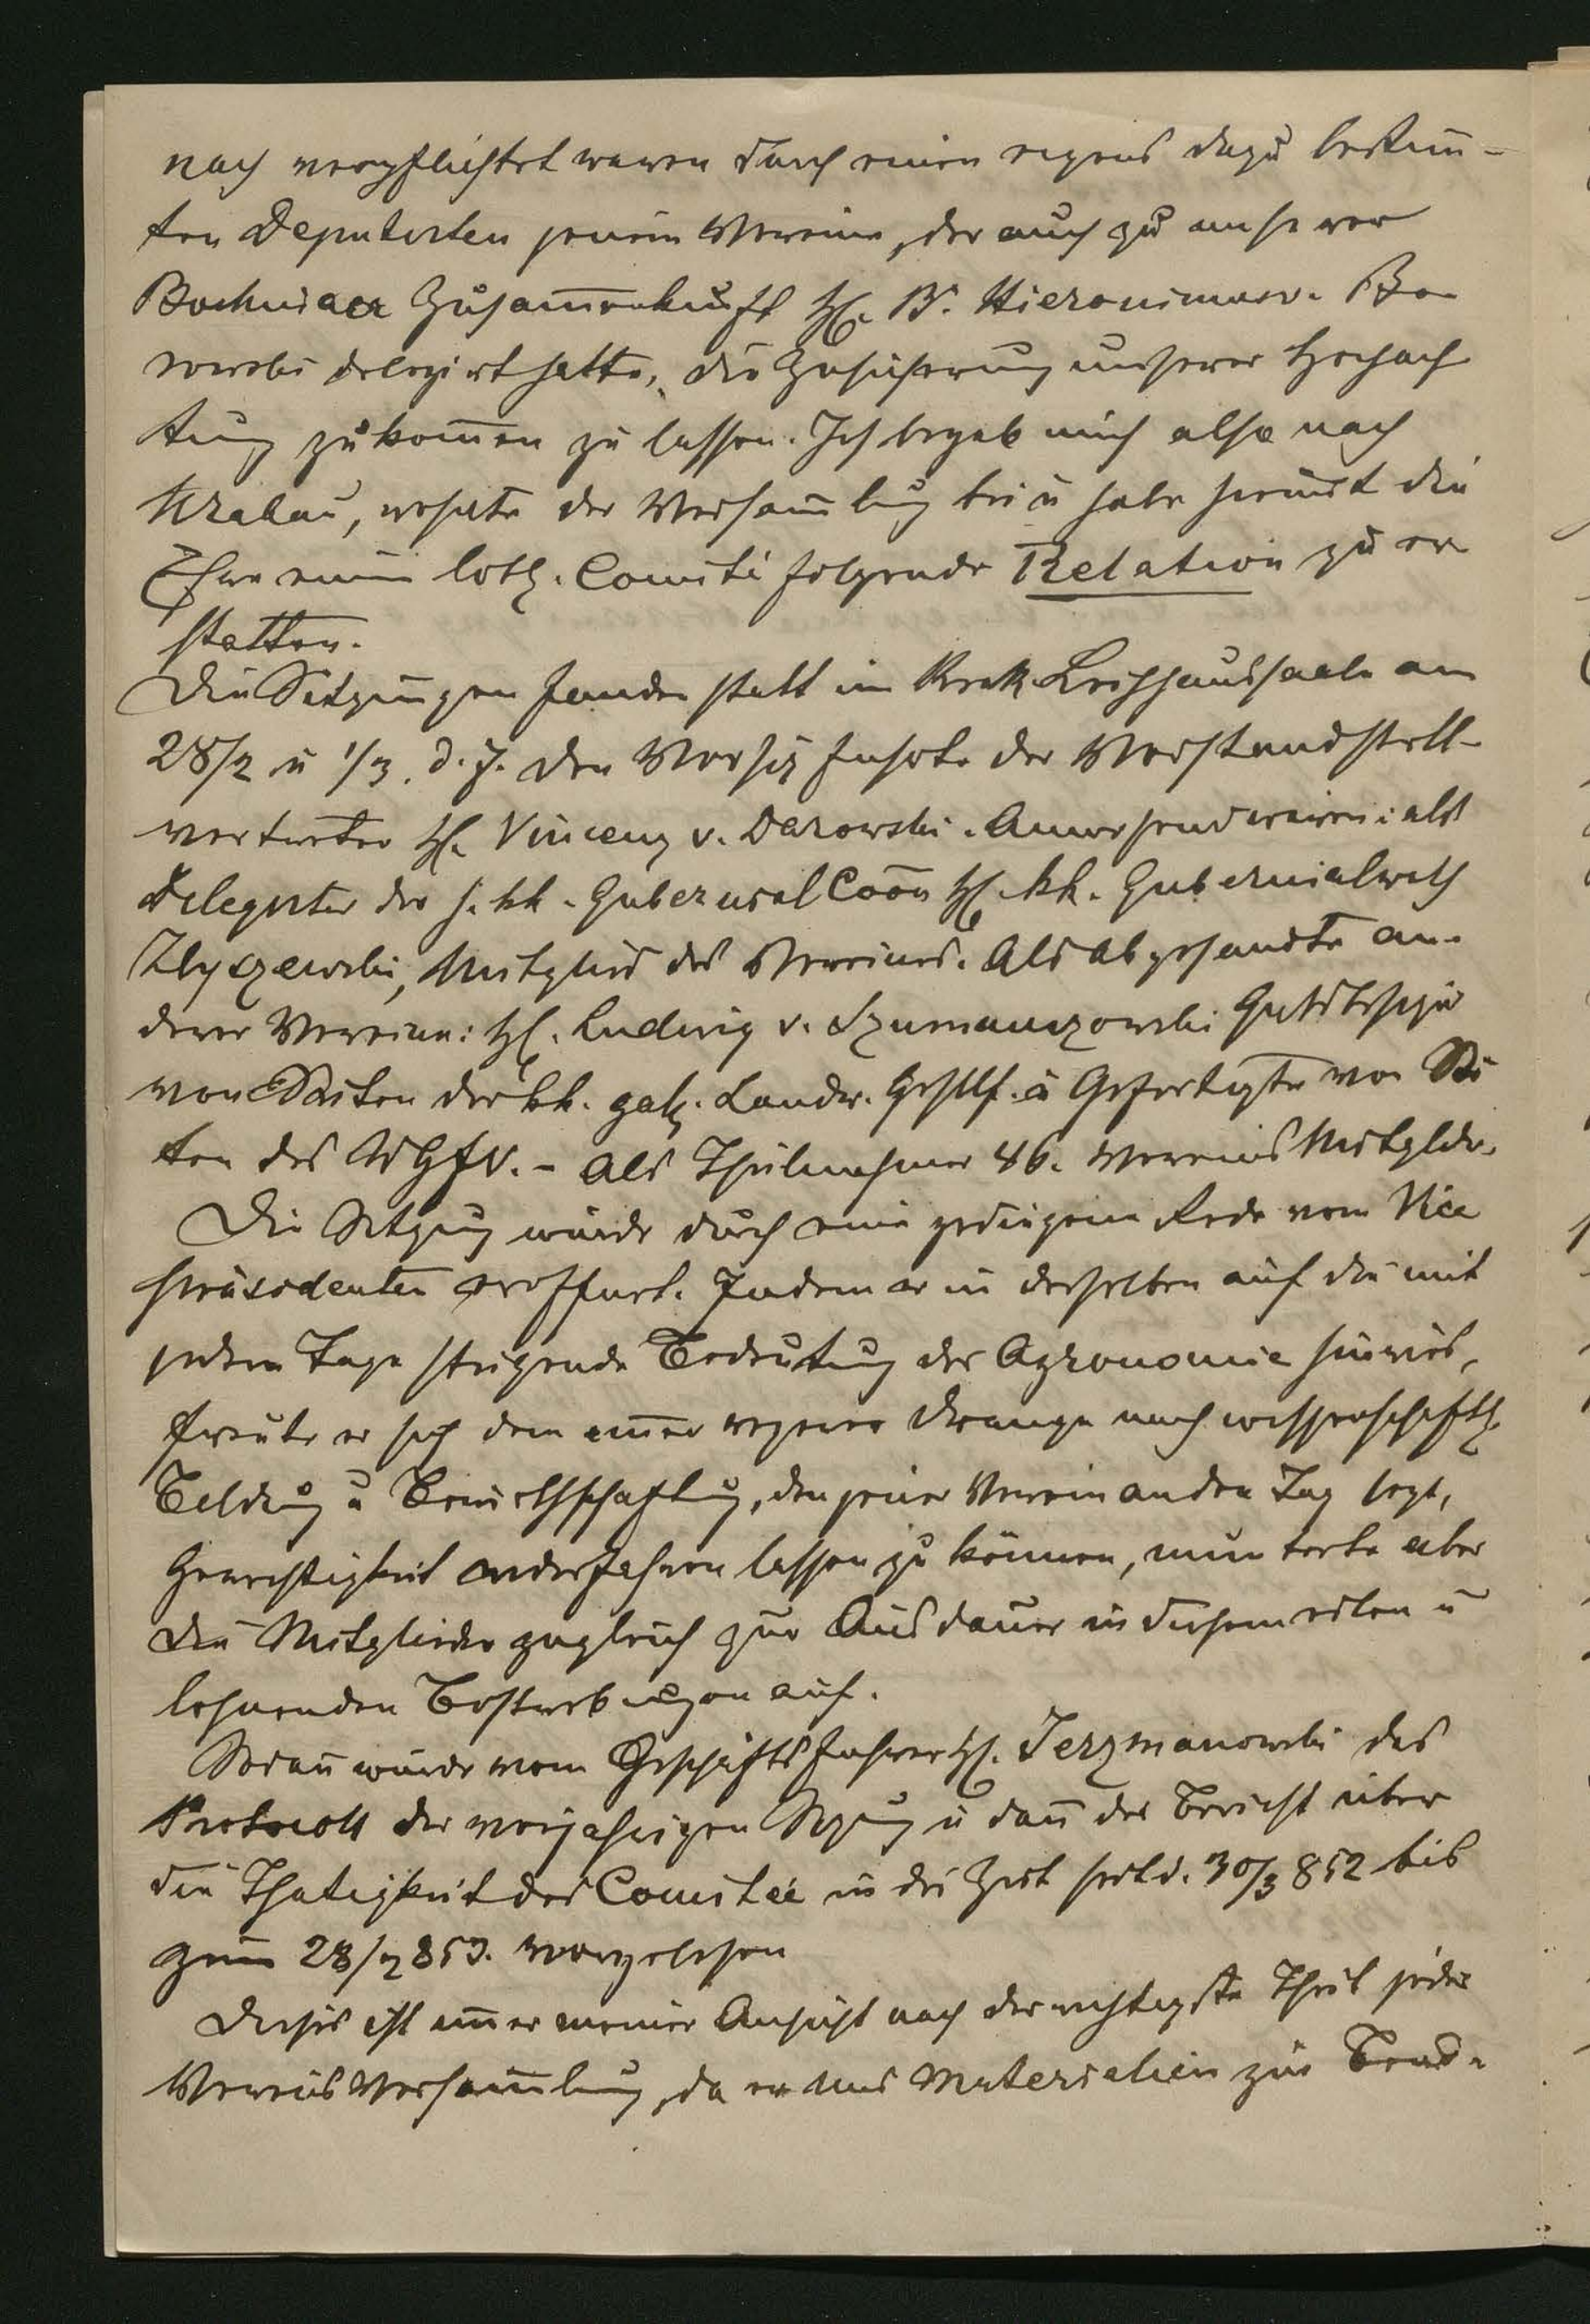 nach verpflichtet waren durch einen eigens dazu bestim̄-
ten Deputirten jenem Vereine, der auch zu unserer
Bochniaer Zusam̄enkunft H. B. Hieronimus v. Bo
rowski delegirt hatte, die Zusicherung unserer Hochach
tung zukom̄en zu lassen. Ich begab mich also nach
Krakau, wohnte der Versam̄lung bei u habe hiemit die
Ehre einem löbl. Comité folgende Relation zu er
statten.
Die Sitzungen fanden statt im Krak. Leihhaussaale am
28/2 u 1/3. d. J. Den Vorsiz führte der Vorstandstell-
vertreter H. Vincenz v. Darowski. Anwesend waren: als
Delegirter der h. kk. Gubernial Coōn H. kk. Gubernialrath
Zbyszewski, Mitglied des Vereines. Als Abgesandte an-
derer Vereine: H. Ludwig v. Szumanczowski Gutsbesizer
von Seiten der kk. galz. Landw. Gesllf. u Gefertigte von Sei
ten des WGFV. - Als Theilnehmer 46. Vereins Mitglder.
Die Sitzung wurde durch eine gediegene Rede vom Vice
präsidenten eröffnet. Indem er in derselben auf die mit
jedem Tage steigende Bedeutung der Agronomie hinwies,
freute er sich dem im̄er regeren Drange nach wissenschaftl.
Bildung u Bewirthschaftung, den jener Verein an den Tag legt,
Gerechtigkeit widerfahren lassen zu können, munterte aber
die Mitglieder zugleich zur Ausdauer in diesem edlen u
lohnenden Bestrebungen auf.
Sodan̄ wurde vom Geschäftsführer H. Jerzmanowski das
Protocoll der vorjährigen Sizung u dan̄ der Bericht über
die Thätigkeit des Comitée in der Zeit seit d. 30/3 852 bis
zum 28/2 853. vorgelesen
Dieser ist im̄er meiner Ansicht nach der wichtigste Theil jeder
Vereins Versam̄lung, da er uns Materialien zur Beur-